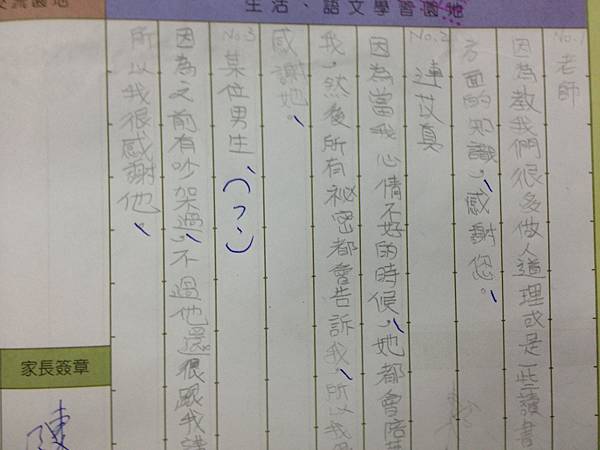 生活、語文學習園地
No.1 老師
因為教我們很多做人道理或是一些讀書
方面的知識,感謝您。
No.2 連苡真
因為當我心情不好的時候,她都會陪
我,然後所有祕密都會告訴我,所以我
感謝她。
No.3 某位男生
因為之前有吵架過,不過他還很跟我
所以我很感謝他。
家長簽章
陳